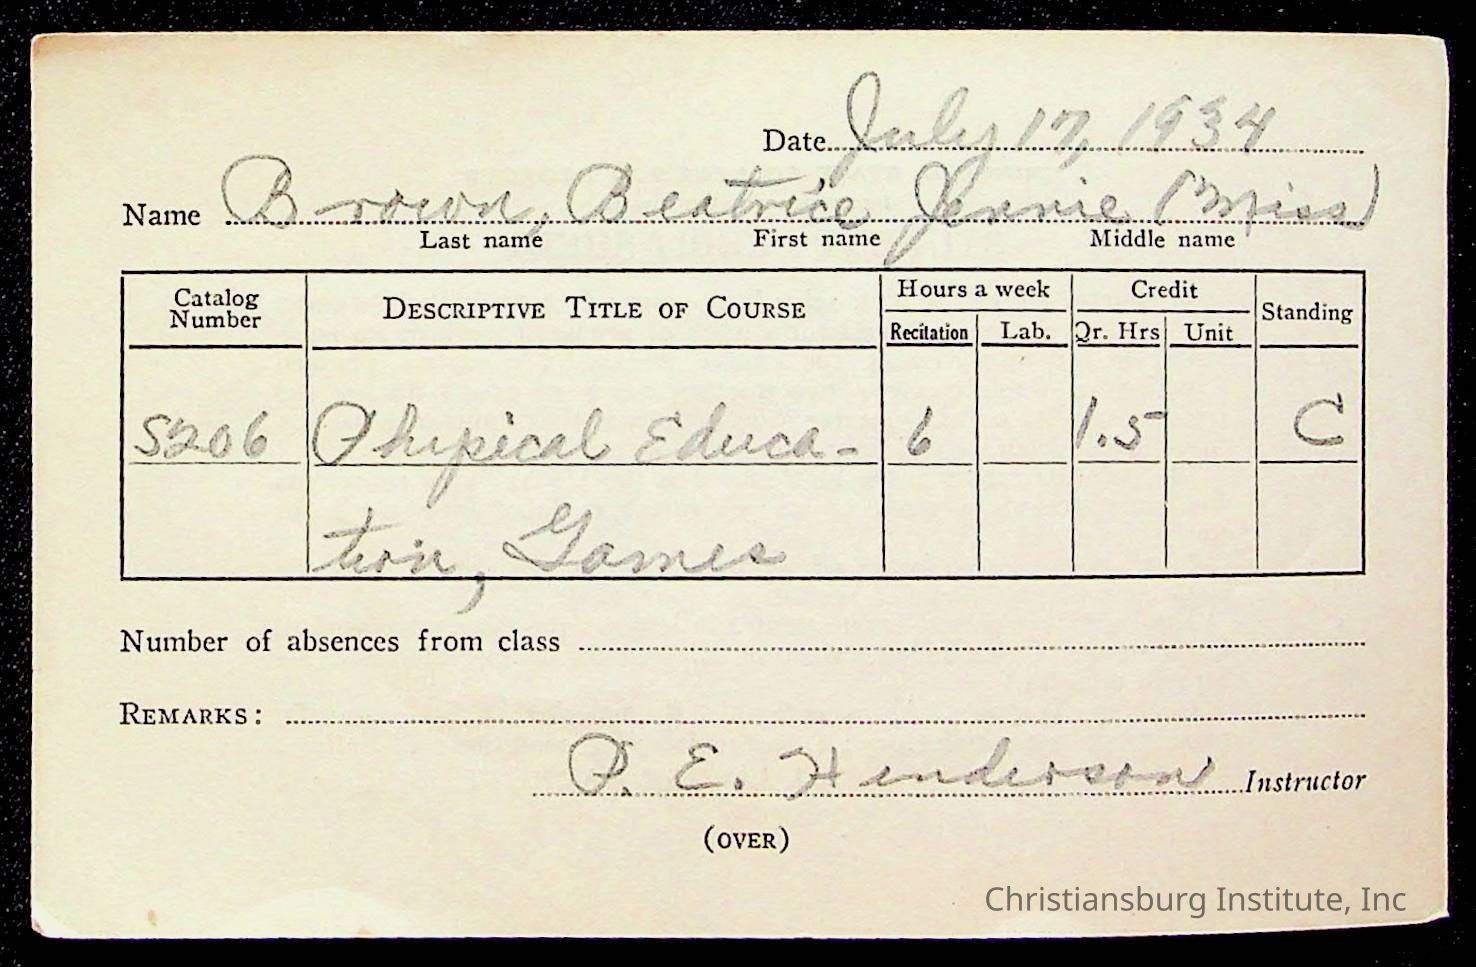 Date July 17, 1934
Name Brown, Beatrice Jennie (Miss)
Last name First name Middle name
Catalog Number DESCRIPTIVE TITLE OF COURSE Hours a week Credit Standing
Recitation Lab. Qr. Hrs Unit
S206 Physical Educa- 6 1.5 C
tion, Games
Number of absences from class
REMARKS:
P. E. Henderson Instructor
(OVER)
Christiansburg Institute, Inc